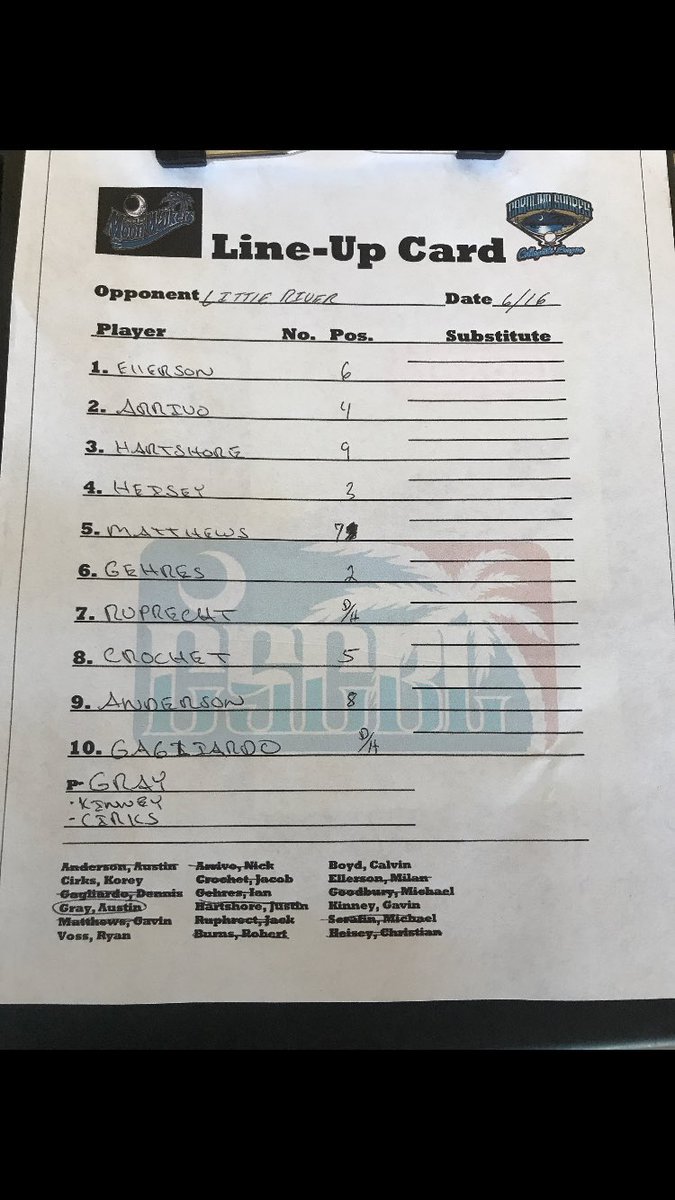 MoonWalkers
Line-Up Card
CAROLINA SHORES
Collegiate League
Opponent LITTLE RIVER Date 6/16
Player No. Pos. Substitute
1. EllERSON 6
2. ARRIVO 4
3. HARTSHORE 9
4. HEISEY 3
5. MATTHEWS 7
6. GEHRES 2
7. RUPRECHT D/H
8. CROCHET 5
9. ANDERSON 8
10. GAGlIARDO D/H
CSCBL
P- GRAY
· KINNEY
- CIRKS
Anderson, Austin Arrivo, Nick Boyd, Calvin
Cirks, Korey Crochet, Jacob Ellerson, Milan
Gagliardo, Dennis Gehres, Ian Goodbury, Michael
Gray, Austin Hartshore, Justin Kinney, Gavin
Matthews, Gavin Ruphrect, Jack Serafin, Michael
Voss, Ryan Burns, Robert Heisey, Christian